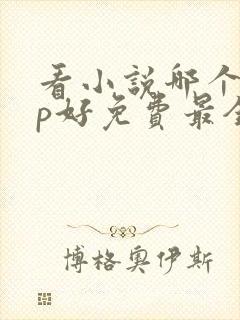 看小說哪个
p好免費最全
博格奥伊斯